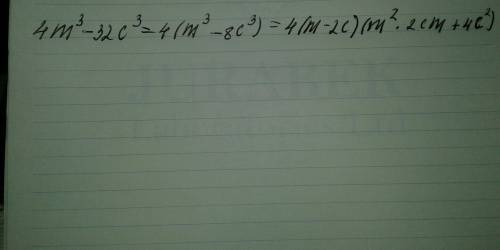 4m³-32c³=4(m³-8c³)=4(m-2c)(m²·2cm+4c²)